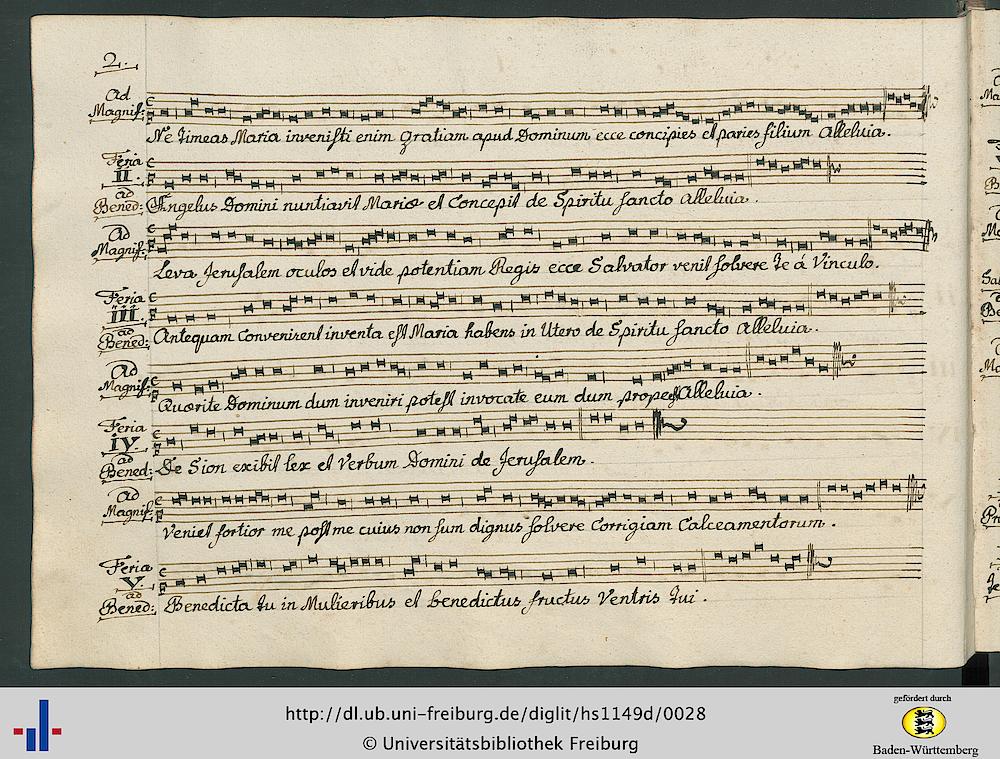 2.
Ad Magnif: Ne timeas Maria invenisti enim gratiam apud Dominum ecce concipies et paries filium Alleluia.
Feria II. ad Bened: Angelus Domini nuntiavit Mariæ et Concepit de Spiritu sancto Alleluia.
Ad Magnif: Leva Jerusalem oculos et vide potentiam Regis ecce Salvator venit solvere te á Vinculo.
Feria III. ad Bened: Antequam Convenirent inventa est Maria habens in Utero de Spiritu sancto Alleluia.
Ad Magnif: Quærite Dominum dum inveniri potest invocate eum dum prope est Alleluia.
Feria iV. ad Bened: De Sion exibit lex et Verbum Domini de Jerusalem.
Ad Magnif: Veniet fortior me post me cuius non sum dignus solvere Corrigiam Calceamentorum.
Feria V. ad Bened: Benedicta tu in Mulieribus et benedictus fructus Ventris tui.
http://dl.ub.uni-freiburg.de/diglit/hs1149d/0028
© Universitätsbibliothek Freiburg
gefördert durch
Baden-Württemberg